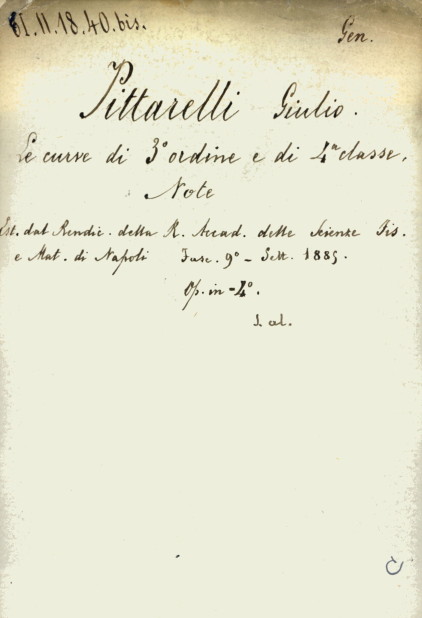 61.11.18.40.bis.
Gen.
Pittarelli Giulio.
Le curve di 3º ordine e di 4ª classe.
Note
Est. dal Rendic. della R. Accad. delle Scienze Fis.
e Mat. di Napoli Fasc. 9º - Sett. 1885.
Op. in-4º.